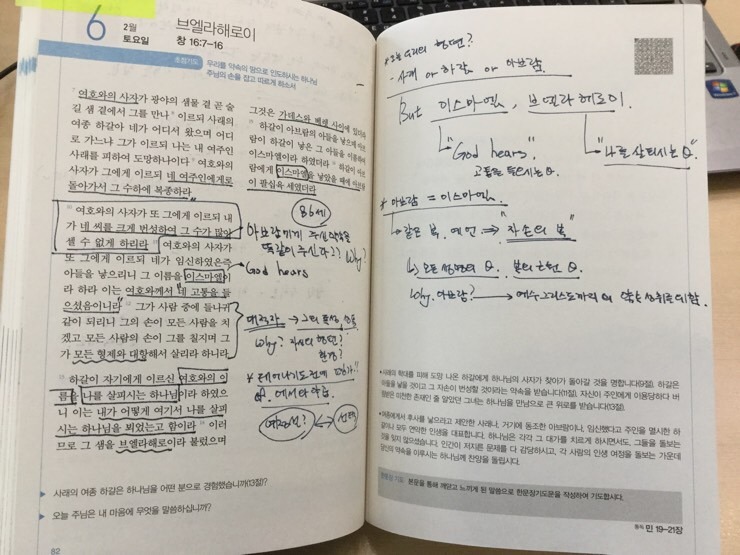 6
2월
토요일
브엘라해로이
창 16:7-16
우리를 약속의 땅으로 인도하시는 하나님
주님의 손을 잡고 따르게 하소서
여호와의 사자가 광야의 샘물 곁 곧 술
길 샘 곁에서 그를 만나 이르되 사래의
여종 하갈아 네가 어디서 왔으며 어디
로 가느냐 그가 이르되 나는 내 여주인
사래를 피하여 도망하나이다 여호와의
사자가 그에게 이르되 네 여주인에게로
돌아가서 그 수하에 복종하라
여호와의 사자가 또 그에게 이르되 내
가 네 씨를 크게 번성하여 그 수가 많아
셀 수 없게 하리라 여호와의 사자가
또 그에게 이르되 네가 임신하였은즉
아들을 낳으리니 그 이름을 이스마엘이
라 하라 이는 여호와께서 네 고통을 들
으셨음이니라 그가 사람 중에 들나귀
같이 되리니 그의 손이 모든 사람을 치
겠고 모든 사람의 손이 그를 칠지며 그
가 모든 형제와 대항해서 살리라 하니라
하갈이 자기에게 이르신 여호와의 이
름을 나를 살피시는 하나님이라 하였으
니 이는 내가 어떻게 여기서 나를 살피
시는 하나님을 뵈었는고 함이라 이러
므로 그 샘을 브엘라해로이라 불렀으며
그것은 가데스와 베렛 사이에 있더라
하갈이 아브람의 아들을 낳으매 아브
람이 하갈이 낳은 그 아들을 이름하여
이스마엘이라 하였더라 하갈이 아브
람에게 이스마엘을 낳았을 때에 아브람
이 팔십육 세였더라
86세
아브람에게 주신 약속을
똑같이 주신다?? Why?
God hears
대적자 →
Why?
환경?
↔ 선택
사래의 여종 하갈은 하나님을 어떤 분으로 경험했습니까(13절)?
오늘 주님은 내 마음에 무엇을 말씀하십니까?
82
- 사래 아 하갈 아 아브람.
But 이스마엘, 브엘라해로이.
"God hears".
"나를 살피시는
* 아브람 = 이스마엘.
같은 복, 예언 ⇒ "자손의 복"
Why. 아브람? → 예수 그리스도까지의
사래의 학대를 피해 도망 나온 하갈에게 하나님의 사자가 찾아가 돌아갈 것을 명합니다(9절). 하갈은
아들을 낳을 것이고 그 자손이 번성할 것이라는 약속을 받습니다(11절). 자신이 주인에게 이용당하다 버
려진 존재인 줄 알았던 그녀는 하나님을 만남으로 큰 위로를 받습니다(13절).
여종에게서 후사를 낳으라고 제안한 사래나, 거기에 동조한 아브람이나, 임신했다고 주인을 멸시한 하
갈이나 모두 연약한 인생을 대표합니다. 하나님은 각각 그 대가를 치르게 하시면서도, 그들을 돌보는
것을 잊지 않으셨습니다. 인간이 저지른 문제를 다 감당하시고, 각 사람의 인생 여정을 돌보는 가운데
당신의 약속을 이루시는 하나님께 찬양을 돌립시다.
본문을 통해 깨닫고 느끼게 된 말씀으로 한문장기도문을 작성하여 기도합시다.
통독 민 19-21장